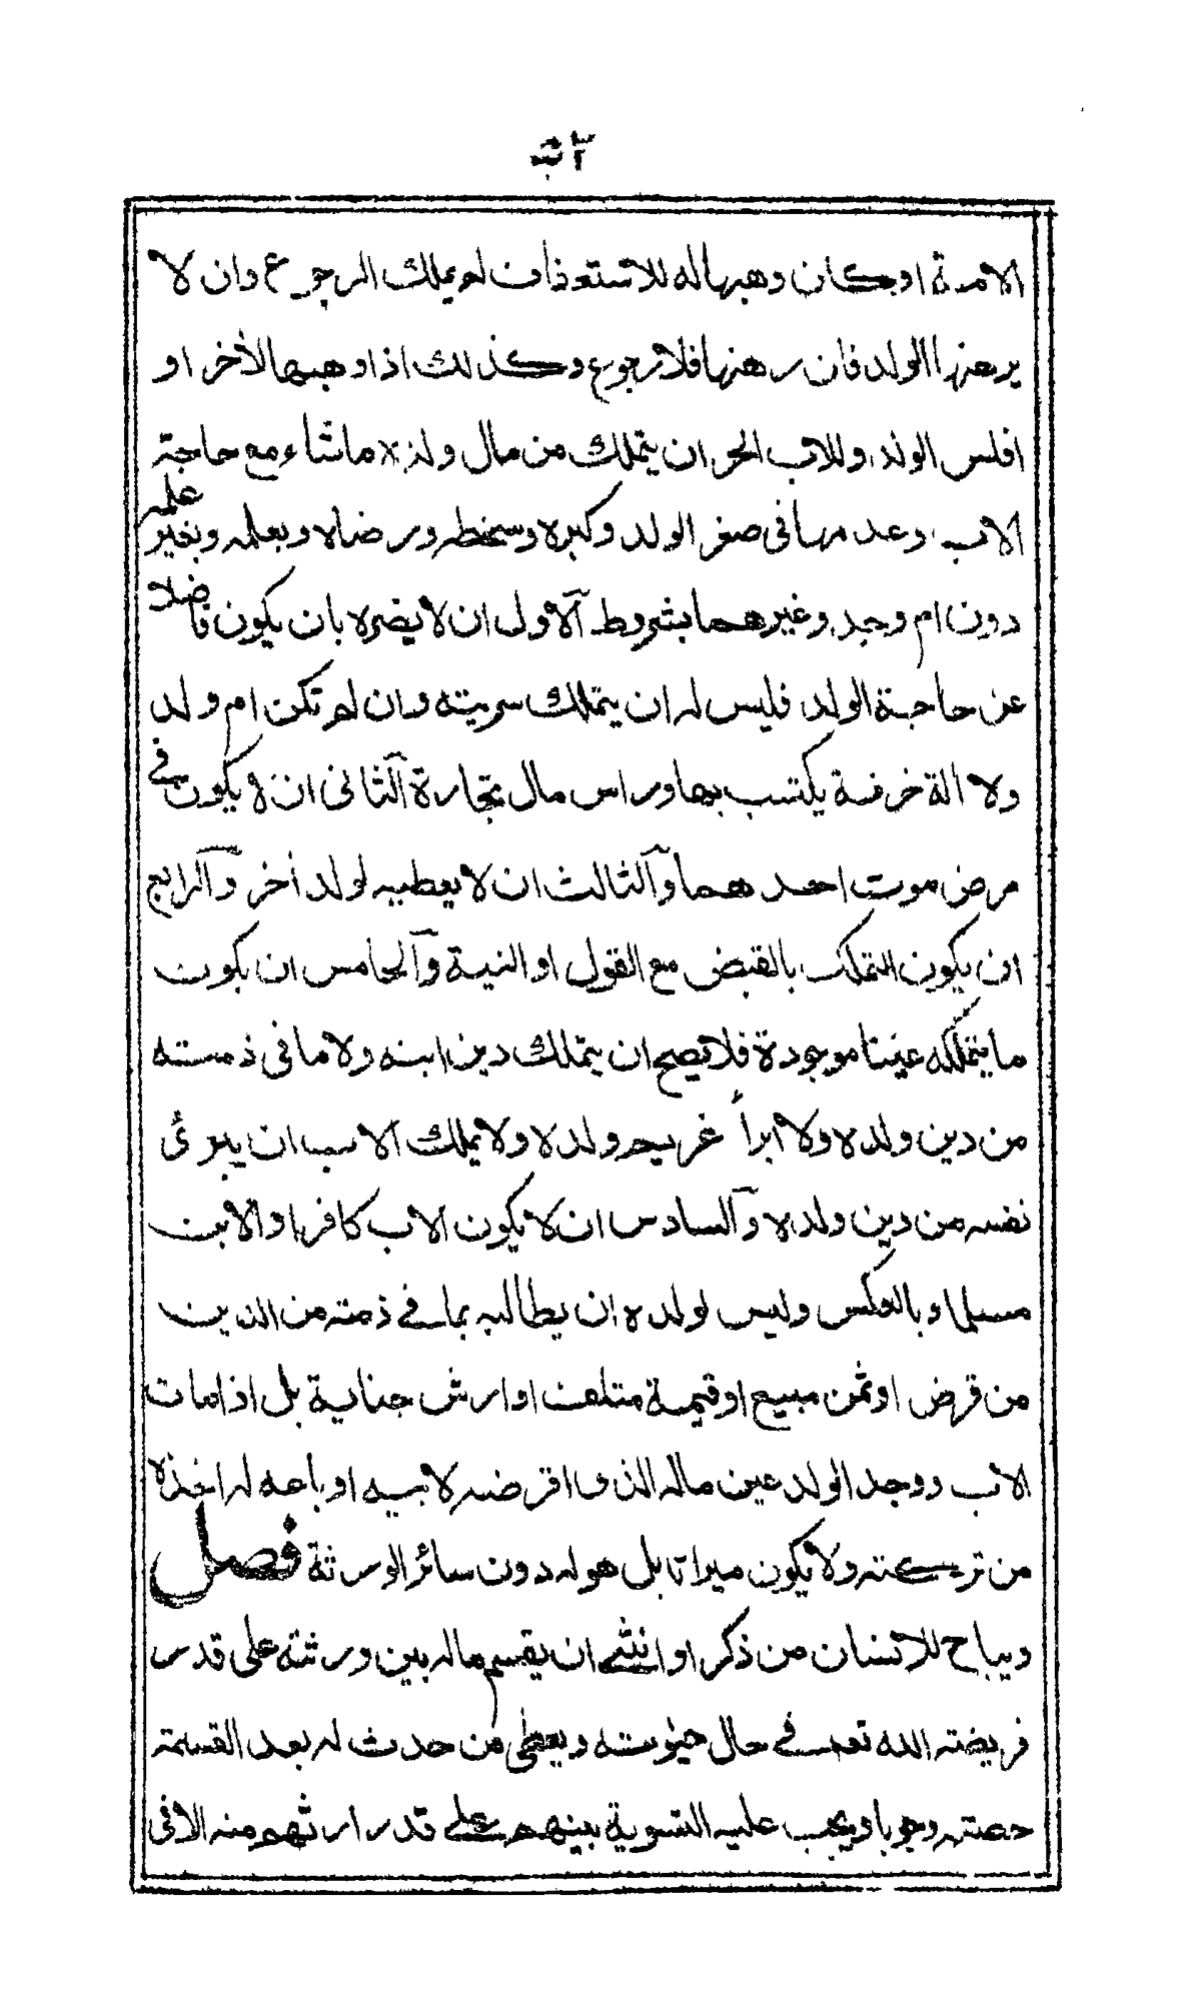 الامة او كان وهبها له للاستعفاف لم يملك الرجوع وان لا
يرهنها الولد فان رهنها فلا رجوع وكذلك اذا وهبها لأخر او
افلس الولد وللاب الحر ان يتملك من مال ولده ما شاء مع حاجة
الاب وعدمها فى صغر الولد وكبره وسخطه ورضاه وبعلمه وبغير علمه
دون ام وجد وغيرهما بشروط الاول ان لا يضره بان يكون فاضلا
عن حاجة الولد فليس له ان يتملك سريته وان لم تكن ام ولد
ولا الة حرفة يكتسب بها وراس مال تجارة الثانى ان لا يكون فى
مرض موت احدهما والثالث ان لا يعطيه لولد أخر والرابع
ان يكون التملك بالقبض مع القول او النية والخامس ان يكون
ما يتملكه عينا موجودة فلا يصح ان يتملك دين ابنه ولا ما فى ذمته
من دين ولده ولا ابرأ غريم ولده ولا يملك الاب ان يبرئ
نفسه من دين ولده والسادس ان لا يكون الاب كافرا والابن
مسلما او بالعكس وليس لولده ان يطالبه بما فى ذمته من الدين
من قرض او ثمن مبيع او قيمة متلف او ارش جناية بل اذا مات
الاب ووجد الولد عين ماله الذى اقرضه لابيه او باعه له اخذه
من تركته ولا يكون ميراثا بل هو له دون سائر الورثة فصل
ويباح للانسان من ذكر او انثى ان يقسم ماله بين ورثته على قدر
فريضة الله تعالى فى حال حيوته ويعطى من حدث له بعد القسمة
حصته وجوبا ويجب عليه التسوية بينهم على قدر ارثهم منه الا فى